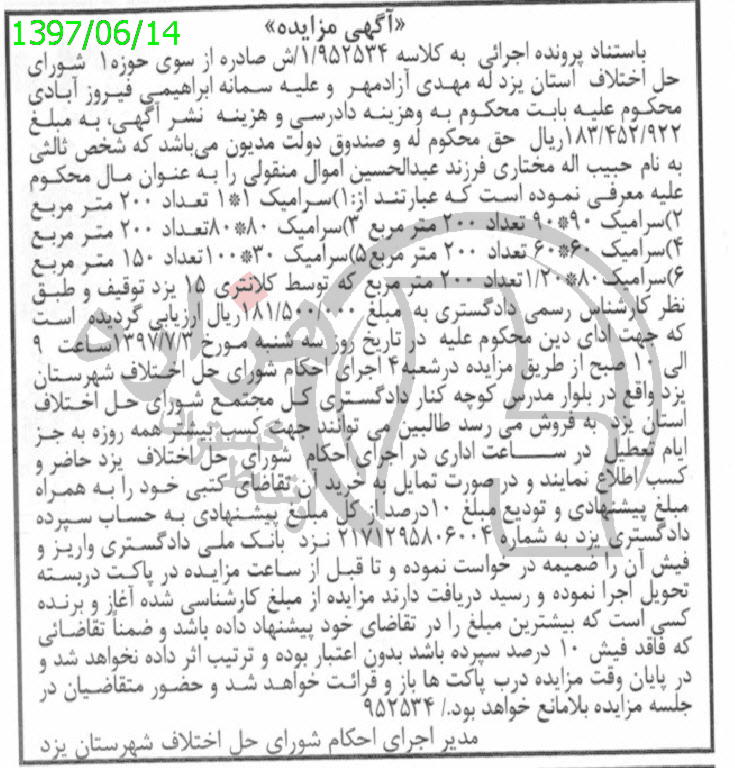 «آگهی مزایده»
1397/06/14
باستناد پرونده اجرائی به کلاسه ۱/۹۵۲۵۳۴/ش صادره از سوی حوزه۱ شورای
حل اختلاف استان یزد له مهدی آزادمهر و علیه سمانه ابراهیمی فیروز آبادی
محکوم علیه بابت محکوم به وهزینه دادرسی و هزینه نشر آگهی، به مبلغ
۱۸۳/۴۵۲/۹۲۲ریال حق محکوم له و صندوق دولت مدیون می‌باشد که شخص ثالثی
به نام حبیب اله مختاری فرزند عبدالحسین اموال منقولی را به عنوان مال محکوم
علیه معرفی نموده است که عبارتند از:۱)سرامیک ۱*۱ تعداد ۲۰۰ متر مربع
۲)سرامیک ۹۰*۹۰ تعداد ۲۰۰ متر مربع ۳)سرامیک ۸۰*۸۰تعداد ۲۰۰ متر مربع
۴)سرامیک ۶۰*۶۰ تعداد ۲۰۰ متر مربع۵)سرامیک ۳۰*۱۰۰تعداد ۱۵۰ متر مربع
۶)سرامیک۸۰*۱/۲۰تعداد ۲۰۰ متر مربع که توسط کلانتری ۱۵ یزد توقیف و طبق
نظر کارشناس رسمی دادگستری به مبلغ ۱۸۱/۵۰۰/۰۰۰ریال ارزیابی گردیده است
که جهت ادای دین محکوم علیه در تاریخ روز سه شنبه مورخ ۱۳۹۷/۷/۳ساعت ۹
الی ۱۰ صبح از طریق مزایده درشعبه۴ اجرای احکام شورای حل اختلاف شهرستان
یزد واقع در بلوار مدرس کوچه کنار دادگستری کل مجتمع شورای حل اختلاف
استان یزد به فروش می رسد طالبین می توانند جهت کسب بیشتر همه روزه به جز
ایام تعطیل در ساعت اداری در اجرای احکام شورای حل اختلاف یزد حاضر و
کسب اطلاع نمایند و در صورت تمایل به خرید آن تقاضای کتبی خود را به همراه
مبلغ پیشنهادی و تودیع مبلغ ۱۰درصد از کل مبلغ پیشنهادی به حساب سپرده
دادگستری یزد به شماره ۲۱۷۱۲۹۵۸۰۶۰۰۴ نزد بانک ملی دادگستری واریز و
فیش آن را ضمیمه در خواست نموده و تا قبل از ساعت مزایده در پاکت دربسته
تحویل اجرا نموده و رسید دریافت دارند مزایده از مبلغ کارشناسی شده آغاز و برنده
کسی است که بیشترین مبلغ را در تقاضای خود پیشنهاد داده باشد و ضمناً تقاضائی
که فاقد فیش ۱۰ درصد سپرده باشد بدون اعتبار بوده و ترتیب اثر داده نخواهد شد و
در پایان وقت مزایده درب پاکت ها باز و قرائت خواهد شد و حضور متقاضیان در
جلسه مزایده بلامانع خواهد بود./ ۹۵۲۵۳۴
مدیر اجرای احکام شورای حل اختلاف شهرستان یزد